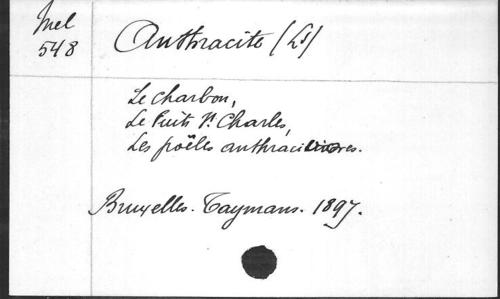 Mel
548
Anthracite (L')
Le Charbon,
Le Puits St Charles,
Les poëles anthracitières.
Bruxelles. Taymans. 1897.